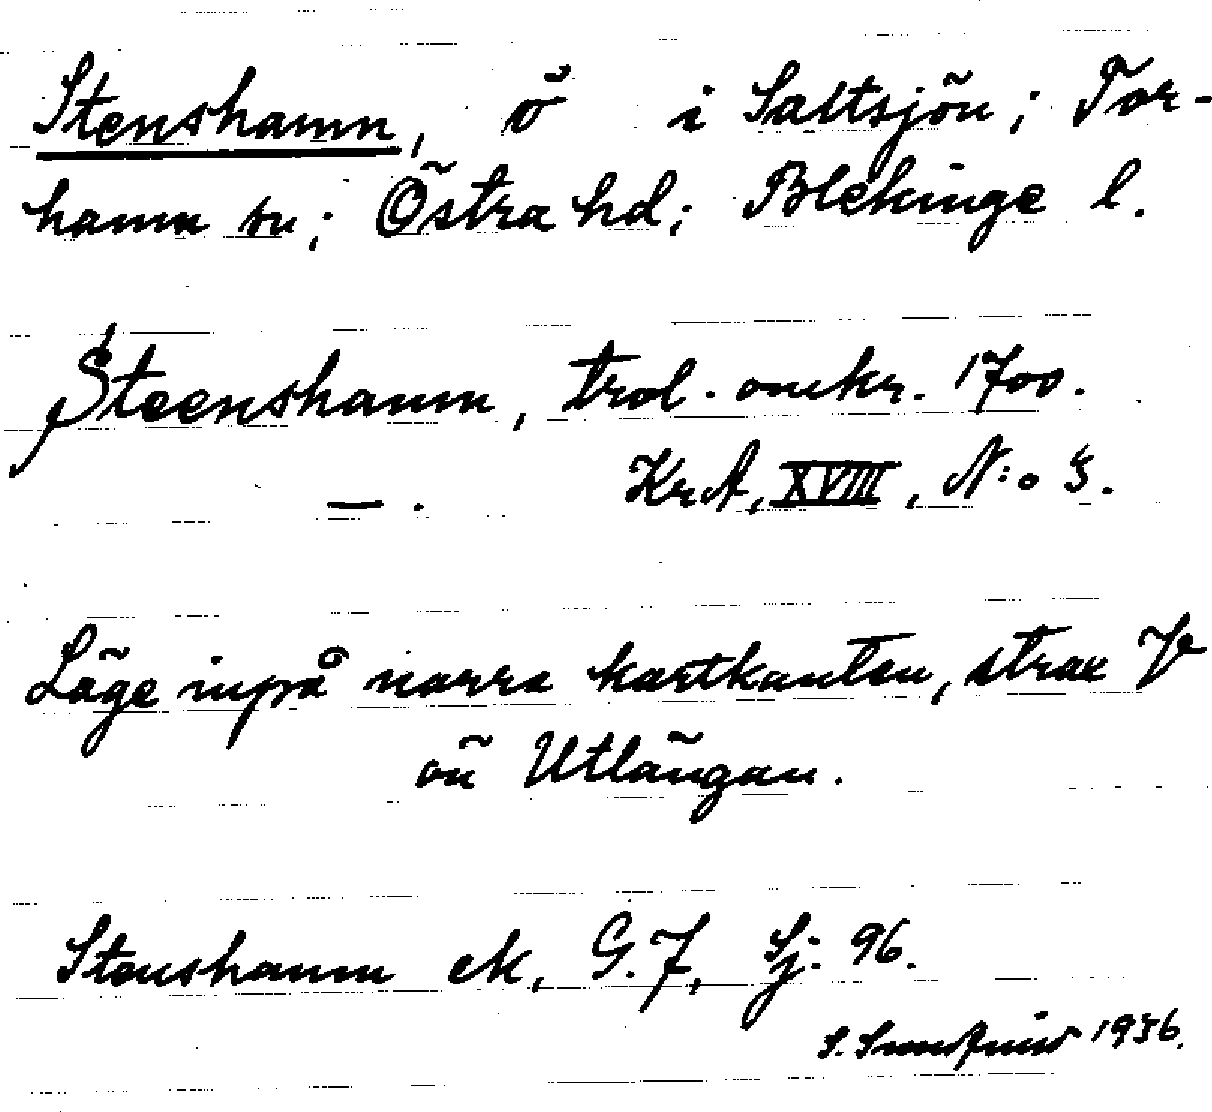 Stenshamn, ö i Saltsjön; Tor-
hamn sn; Östra hd; Blekinge l.
Steenshamn, trol. omkr. 1700.
— . KrA, XVIII, N:o 3.
Läge inpå norra kartkanten, strax V
om Utlängan.
Stenshamn ek, G.F, Sj: 96.
S. 1936.